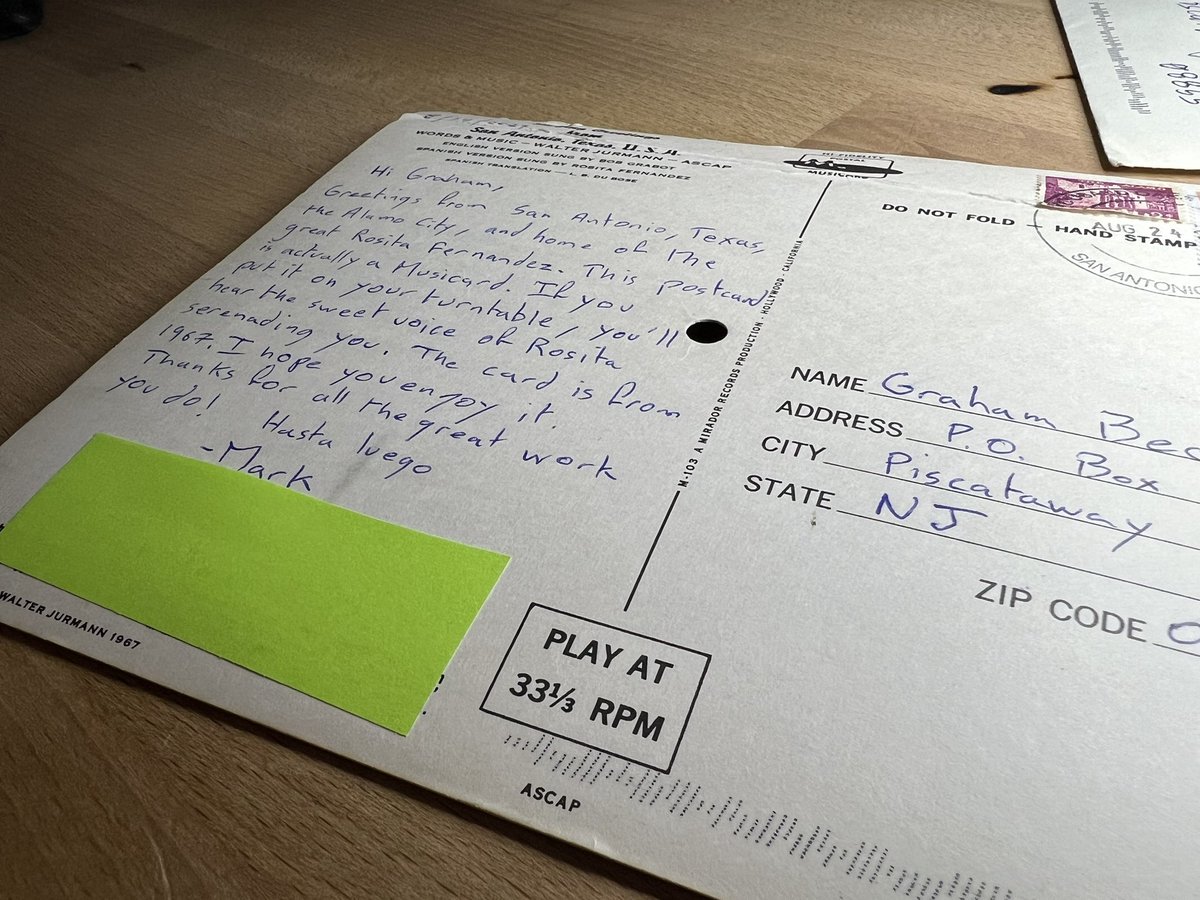 San Antonio, Texas, U.S.A.
WORDS & MUSIC — WALTER JURMANN — ASCAP
ENGLISH VERSION SUNG BY BOB GRABOT
SPANISH VERSION SUNG BY ROSITA FERNANDEZ
SPANISH TRANSLATION — L. B. DU BOSE
Hi Graham,
Greetings from San Antonio, Texas,
the Alamo City, and home of the
great Rosita Fernandez. This postcard
is actually a Musicard. If you
put it on your turntable, you'll
hear the sweet voice of Rosita
serenading you. The card is from
1967. I hope you enjoy it.
Thanks for all the great work
you do!
Hasta luego
-Mark
WALTER JURMANN 1967
HI-FIDELITY
POSTAL
MUSICARD
M-103 A MIRADOR RECORDS PRODUCTION · HOLLYWOOD · CALIFORNIA
DO NOT FOLD — HAND STAMP
AUG 24
SAN ANTONIO
NAME Graham Bec
ADDRESS P.O. Box
CITY Piscataway
STATE NJ
ZIP CODE 0
PLAY AT
33⅓ RPM
ASCAP